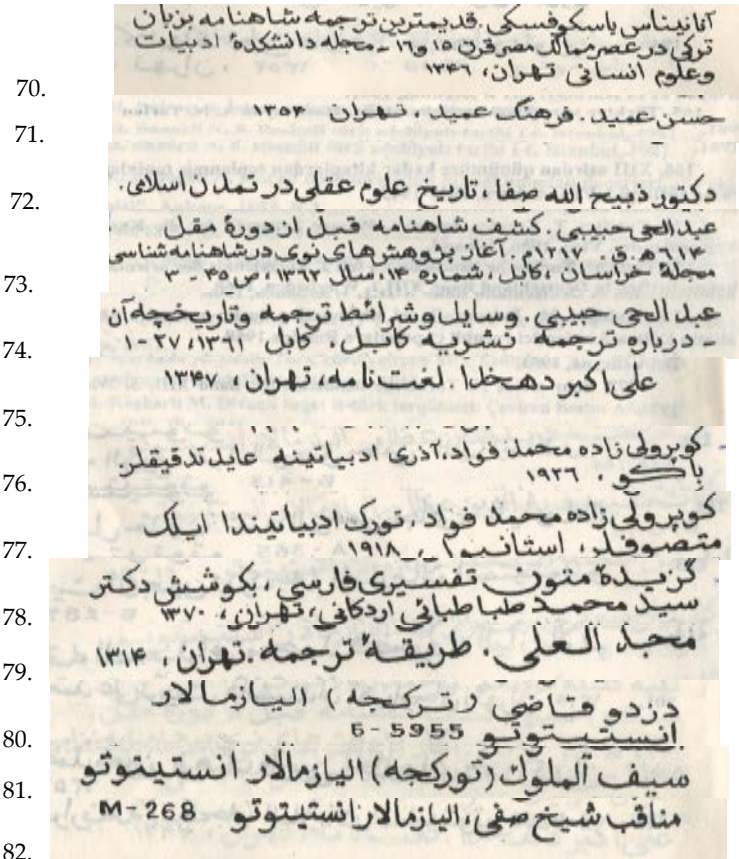 آنانیناس باسکوفسکی. قدیمترین ترجمه شاهنامه بزبان
ترکی در عصر ممالک مصر قرن ۱۵ و ۱۶ ـ مجله دانشکدهٔ ادبیات
وعلوم انسانی تهران، ۱۳۴۶
70.
حسن عمید. فرهنگ عمید. تهران ۱۳۵۳
71.
دکتور ذبیح الله صفا، تاریخ علوم عقلی در تمدن اسلامی.
72.
عبدالحی حبیبی. کشف شاهنامه قبل از دورهٔ مغل
۶۱۴ ه.ق. ۱۲۱۷م. آغاز پژوهش‌های نوی در شاهنامه شناسی
مجلهٔ خراسان، کابل، شماره ۱۴، سال ۱۳۶۲، ص ۴۵ - ۳
73.
عبدالحی حبیبی. وسایل وشرائط ترجمه وتاریخچه آن
ـ درباره ترجمه نشریه کابل، کابل، ۱۳۶۱، ۲۷-۱
74.
علی اکبر دهخدا. لغت نامه، تهران، ۱۳۴۷
75.
کوپرولی زاده محمد فواد، آذری ادبیاتینه عاید تدقیقلر.
باکو، ۱۹۲۶
76.
کوپرولی زاده محمد فواد، تورک ادبیاتیندا ایلک
متصوفلر، استانبول ۱۹۱۸
77.
گزیدهٔ متون تفسیری فارسی، بکوشش دکتر
سید محمد طباطبائی اردکانی، تهران، ۱۳۷۰
78.
مجد العلی. طریقهٔ ترجمه. تهران، ۱۳۱۴
79.
دزد و قاضی (ترکجه) الیازمالار
انستیتوتو Б-5955
80.
سیف الملوک (تورکجه) الیازمالار انستیتوتو
81.
مناقب شیخ صفی، الیازمالار انستیتوتو M-268
82.